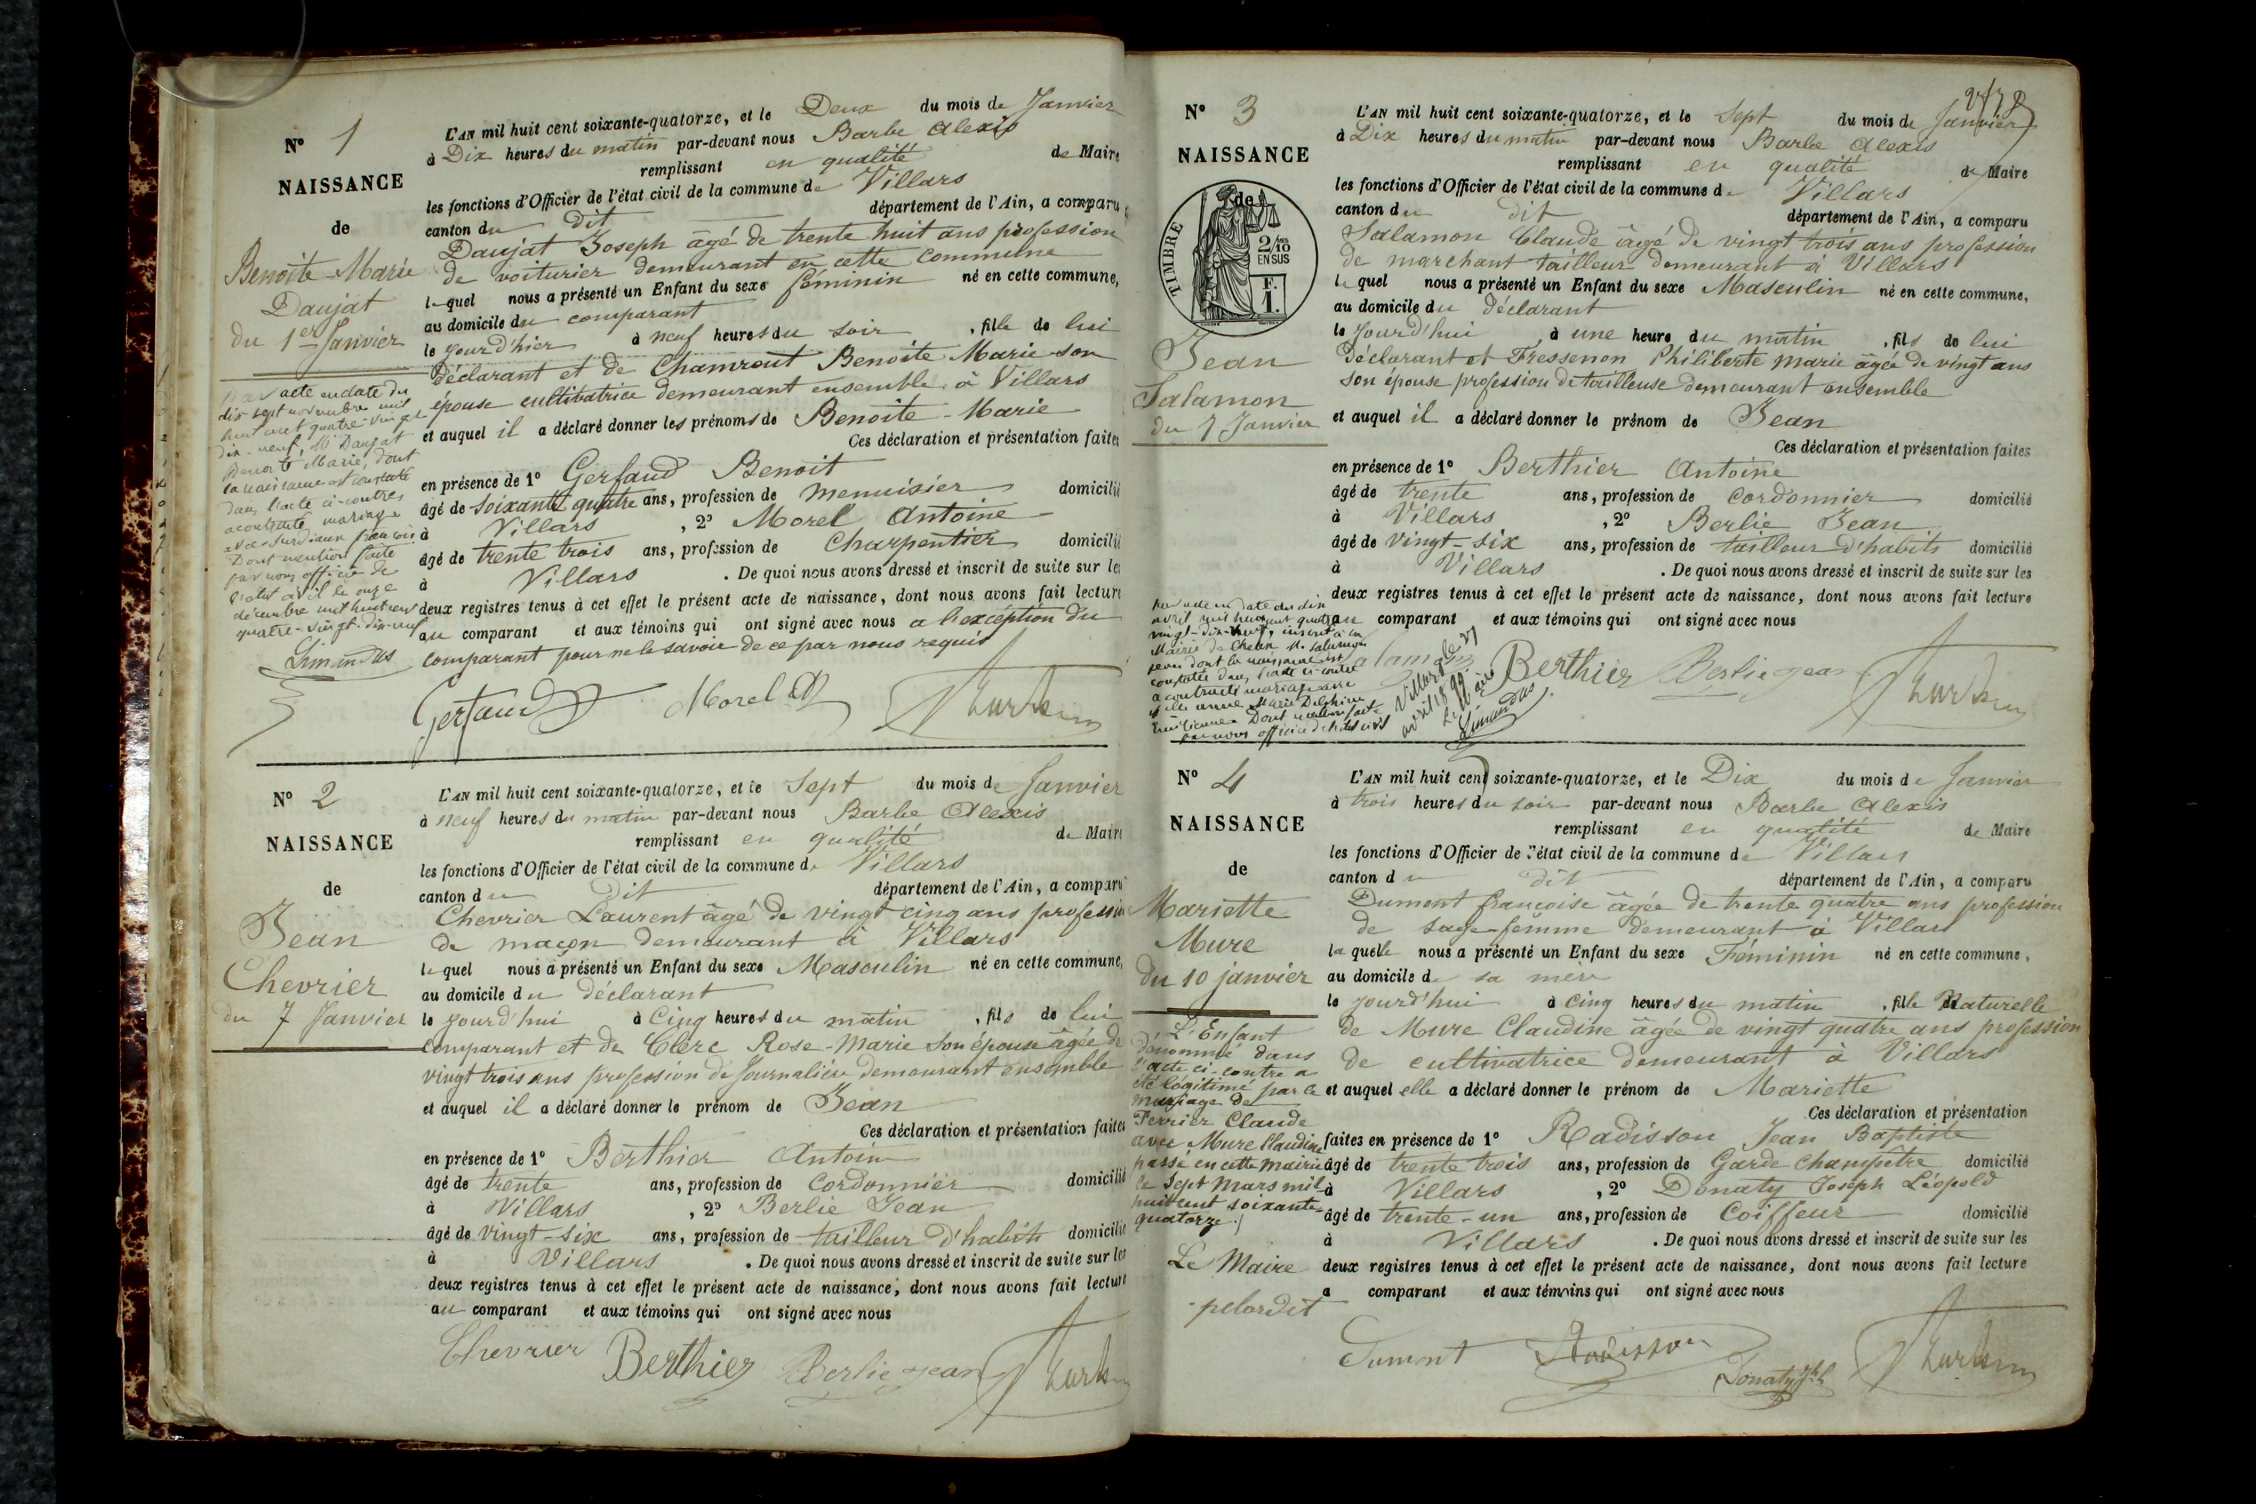 N° 1
NAISSANCE
de
Benoite-Marie
Daujat
du 1er Janvier
L'AN mil huit cent soixante-quatorze, et le Deux du mois de Janvier
à Dix heures du matin par-devant nous Barbe Alexis
remplissant en qualité de Maire
les fonctions d'Officier de l'état civil de la commune de Villars
canton du dit département de l'Ain, a comparu
Daujat Joseph âgé de trente huit ans profession
de voiturier demeurant en cette commune
lequel nous a présenté un Enfant du sexe féminin né en cette commune,
au domicile du comparant
le jourd'hier à neuf heures du soir, fille de lui
déclarant et de Chamrout Benoite-Marie son
épouse cultivatrice demeurant ensemble à Villars
et auquel il a déclaré donner les prénoms de Benoite-Marie
Ces déclaration et présentation faites
en présence de 1° Gerfaud Benoit
âgé de soixante quatre ans, profession de menuisier domicilié
à Villars, 2° Morel Antoine
âgé de trente trois ans, profession de Charpentier domicilié
à Villars. De quoi nous avons dressé et inscrit de suite sur les
deux registres tenus à cet effet le présent acte de naissance, dont nous avons fait lecture
au comparant et aux témoins qui ont signé avec nous a l'exception du
comparant pour ne le savoir de ce par nous requis
acte en date du
dix sept novembre mil
huit cent quatre-vingt
dix-neuf, Mlle Daujat
Benoite Marie, dont
la naissance est constatée
dans l'acte ci-contre
a contracté mariage
avec François
Dont mention faite
par nous officier de
l'état civil le onze
décembre mil huit cent
quatre-vingt-dix-neuf
Limandas
Gerfaud Morel
N° 2
NAISSANCE
de
Jean
Chevrier
du 7 Janvier
L'AN mil huit cent soixante-quatorze, et le Sept du mois de Janvier
à neuf heures du matin par-devant nous Barbe Alexis
remplissant en qualité de Maire
les fonctions d'Officier de l'état civil de la commune de Villars
canton du dit département de l'Ain, a comparu
Chevrier Laurent âgé de vingt cinq ans profession
de maçon demeurant à Villars
lequel nous a présenté un Enfant du sexe Masculin né en cette commune,
au domicile du déclarant
le jourd'hui à Cinq heures du matin, fils de lui
comparant et de Clerc Rose-Marie son épouse âgée de
vingt trois ans profession de Journalière demeurant ensemble
et auquel il a déclaré donner le prénom de Jean
Ces déclaration et présentation faites
en présence de 1° Berthier Antoine
âgé de trente ans, profession de cordonnier domicilié
à Villars, 2° Berlie Jean
âgé de vingt-six ans, profession de tailleur d'habits domicilié
à Villars. De quoi nous avons dressé et inscrit de suite sur les
deux registres tenus à cet effet le présent acte de naissance, dont nous avons fait lecture
au comparant et aux témoins qui ont signé avec nous
Chevrier Berthier Berlie Jean
N° 3
NAISSANCE
de
TIMBRE
2/10 EN SUS
F. 1.
Jean
Salamon
du 7 Janvier
L'AN mil huit cent soixante-quatorze, et le Sept du mois de Janvier
à Dix heures du matin par-devant nous Barbe Alexis
remplissant en qualité de Maire
les fonctions d'Officier de l'état civil de la commune de Villars
canton du dit département de l'Ain, a comparu
Salamon Claude âgé de vingt trois ans profession
de marchant tailleur demeurant à Villars
lequel nous a présenté un Enfant du sexe Masculin né en cette commune,
au domicile du déclarant
le jourd'hui à une heure du matin, fils de lui
déclarant et Fressenon Philiberte Marie âgée de vingt ans
son épouse profession de tailleuse demeurant ensemble
et auquel il a déclaré donner le prénom de Jean
Ces déclaration et présentation faites
en présence de 1° Berthier Antoine
âgé de trente ans, profession de cordonnier domicilié
à Villars, 2° Berlie Jean
âgé de vingt-six ans, profession de tailleur d'habits domicilié
à Villars. De quoi nous avons dressé et inscrit de suite sur les
deux registres tenus à cet effet le présent acte de naissance, dont nous avons fait lecture
au comparant et aux témoins qui ont signé avec nous
Par acte en date du dix
avril mil huit cent quatre
vingt-dix-neuf, inscrit à la
Mairie de M. Salamon
Jean dont la naissance est
constatée dans l'acte ci-contre
a contracté mariage avec
Marie Delphine
Dont mention faite
par nous officier de l'état civil
Villars le 27
avril 1899
Le Maire
Limandas
Salamon Berthier Berlie Jean
N° 4
NAISSANCE
de
Mariette
Mure
du 10 janvier
L'AN mil huit cent soixante-quatorze, et le Dix du mois de Janvier
à trois heures du soir par-devant nous Barbe Alexis
remplissant en qualité de Maire
les fonctions d'Officier de l'état civil de la commune de Villars
canton du dit département de l'Ain, a comparu
Dumont françoise âgée de trente quatre ans profession
de sage-femme demeurant à Villars
laquelle nous a présenté un Enfant du sexe Féminin né en cette commune,
au domicile de sa mère
le jourd'hui à cinq heures du matin, fille Naturelle
de Mure Claudine âgée de vingt quatre ans profession
de cultivatrice demeurant à Villars
et auquel elle a déclaré donner le prénom de Mariette
Ces déclaration et présentation
faites en présence de 1° Radisson Jean Baptiste
âgé de trente trois ans, profession de Garde champêtre domicilié
à Villars, 2° Donaty Joseph Léopold
âgé de trente-un ans, profession de Coiffeur domicilié
à Villars. De quoi nous avons dressé et inscrit de suite sur les
deux registres tenus à cet effet le présent acte de naissance, dont nous avons fait lecture
a comparant et aux témoins qui ont signé avec nous
L'Enfant
dénommé dans
l'acte ci-contre a
été légitimé par le
mariage de
Perrier Claude
avec Mure Claudine
passé en cette mairie
le sept mars mil
huit cent soixante
quatorze
Le Maire
Dumont Radisson
Donaty